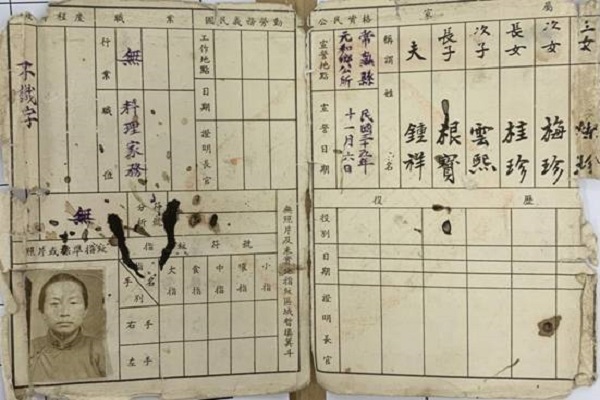 家屬
三女 珍
次女 梅珍
長女 桂珍
次子 雲熙
長子 根寶
夫 鍾祥
稱謂 姓名
公民資格
常熟縣
元和鄉公所
宣誓地點
民國三十五年
十一月六日
宣誓日期
役歷
役別
日期
證明長官
國民義務勞動
工作地點
日期
證明長官
職業
無 料理家務
行業
職位
程度
不識字
無照片及未實施指紋區域暫填箕斗
指紋符號
小指
環指
中指
食指
大指
指名
手別
右手
左手
分析
無
照片或標準指紋